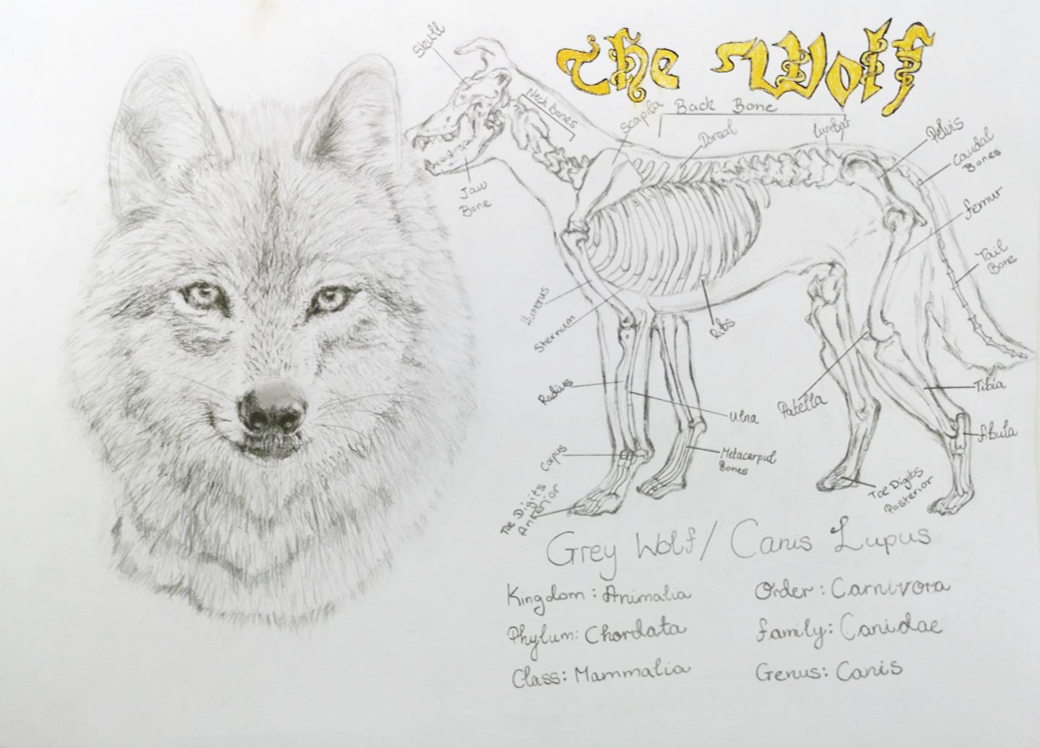 The Wolf
Skull
Neck Bones
Scapula
Back Bone
Dorsal
Lumbar
Pelvis
Caudal
Bones
Jaw
Bone
Femur
Tail
Bone
Humerus
Sternum
Ribs
Radius
Ulna
Patella
Tibia
Fibula
Carpus
Metacarpal
Bones
Toe Digits
Anterior
Toe Digits
Posterior
Grey Wolf / Canis Lupus
Kingdom : Animalia
Order : Carnivora
Phylum: Chordata
Family: Canidae
Class: Mammalia
Genus: Canis